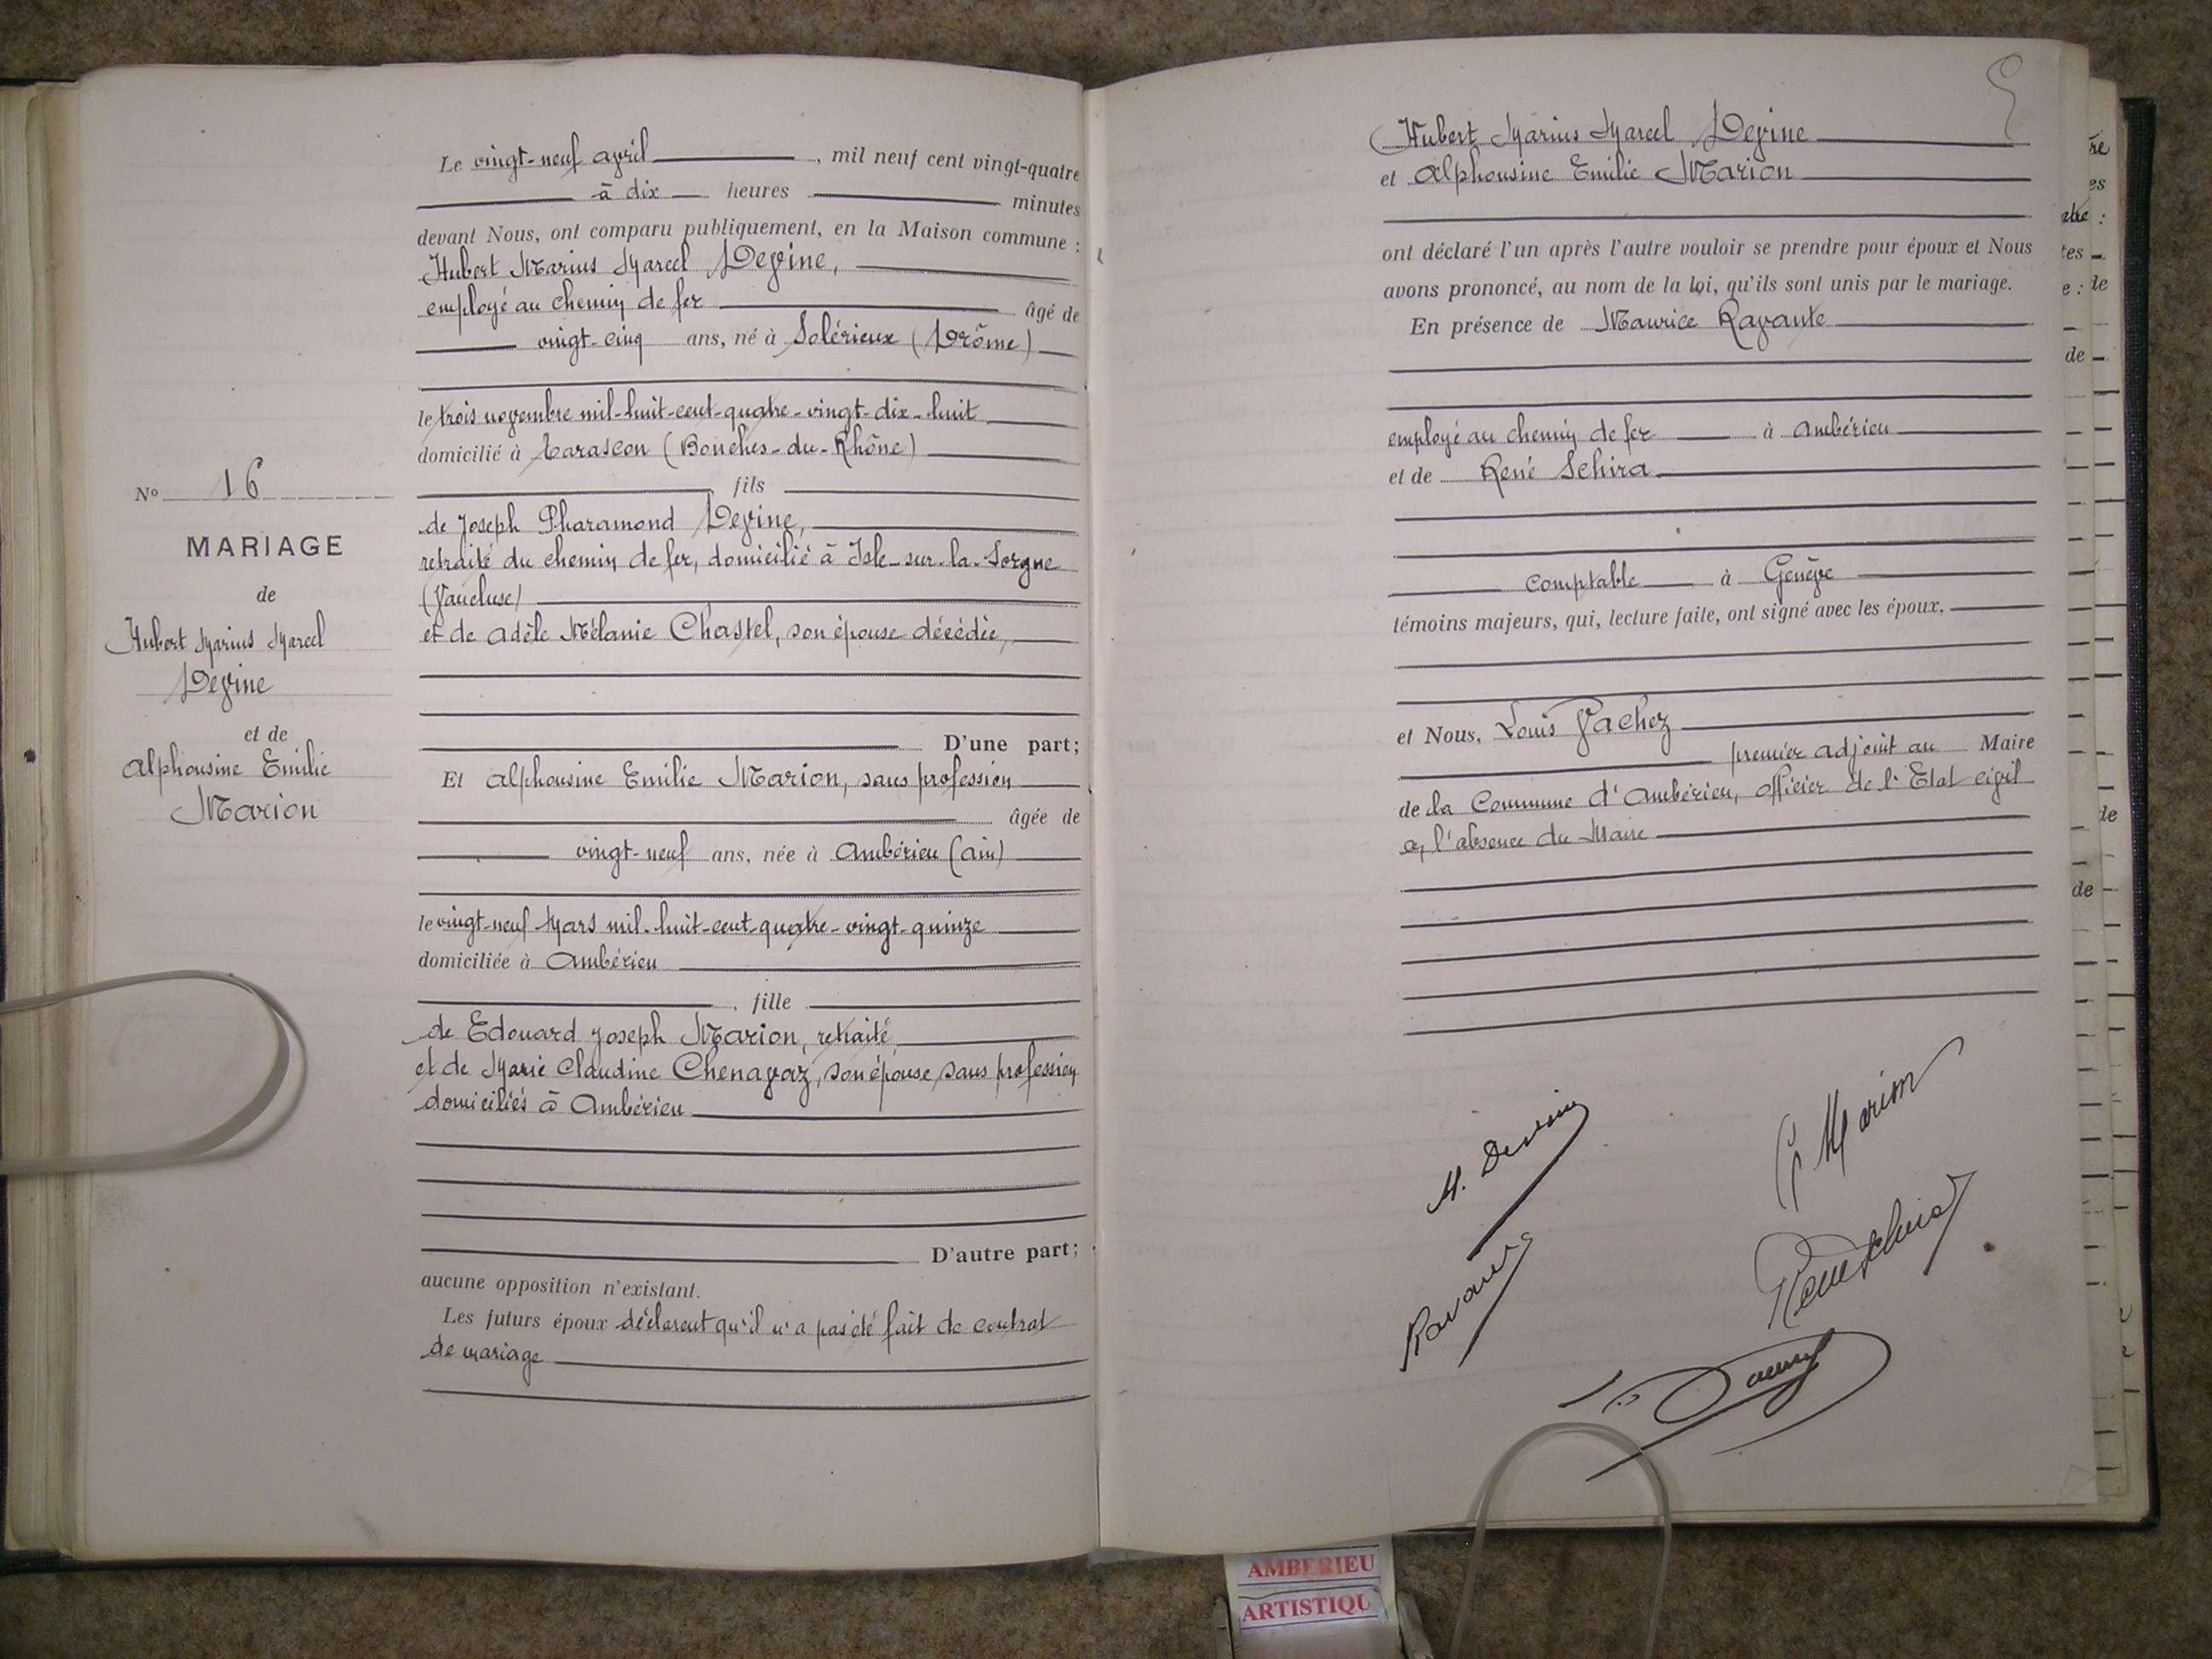 Le vingt-neuf avril, mil neuf cent vingt-quatre
à dix heures minutes
devant Nous, ont comparu publiquement, en la Maison commune :
Hubert Marius Marcel Devine,
employé au chemin de fer âgé de
vingt-cinq ans, né à Solérieux (Drôme)
le trois novembre mil-huit-cent-quatre-vingt-dix-huit
domicilié à Tarascon (Bouches-du-Rhône)
fils
de Joseph Pharamond Devine,
retraité du chemin de fer, domicilié à Isle-sur-la-Sorgne
(Vaucluse)
et de Adèle Mélanie Chastel, son épouse décédée,
D'une part;
Et Alphonsine Emilie Marion, sans profession
âgée de
vingt-neuf ans, née à Ambérieu (Ain)
le vingt-neuf Mars mil-huit-cent-quatre-vingt-quinze
domiciliée à Ambérieu
, fille
de Edouard Joseph Marion, retraité
et de Marie Claudine Chenavaz, son épouse, sans profession
domiciliés à Ambérieu
D'autre part;
aucune opposition n'existant.
Les futurs époux déclarent qu'il n'a pas été fait de contrat
de mariage
No 16
MARIAGE
de
Hubert Marius Marcel
Devine
et de
Alphonsine Emilie
Marion
Hubert Marius Marcel Devine
et Alphonsine Emilie Marion
ont déclaré l'un après l'autre vouloir se prendre pour époux et Nous
avons prononcé, au nom de la loi, qu'ils sont unis par le mariage.
En présence de Maurice Ravante
employé au chemin de fer à Ambérieu
et de René Schira
comptable à Genève
témoins majeurs, qui, lecture faite, ont signé avec les époux.
et Nous, Louis Vachez
premier adjoint au Maire
de la Commune d'Ambérieu, officier de l'Etat civil
en l'absence du Maire
M. Devine
Marion
Ravante
René Schira
AMBERIEU
ARTISTIQU